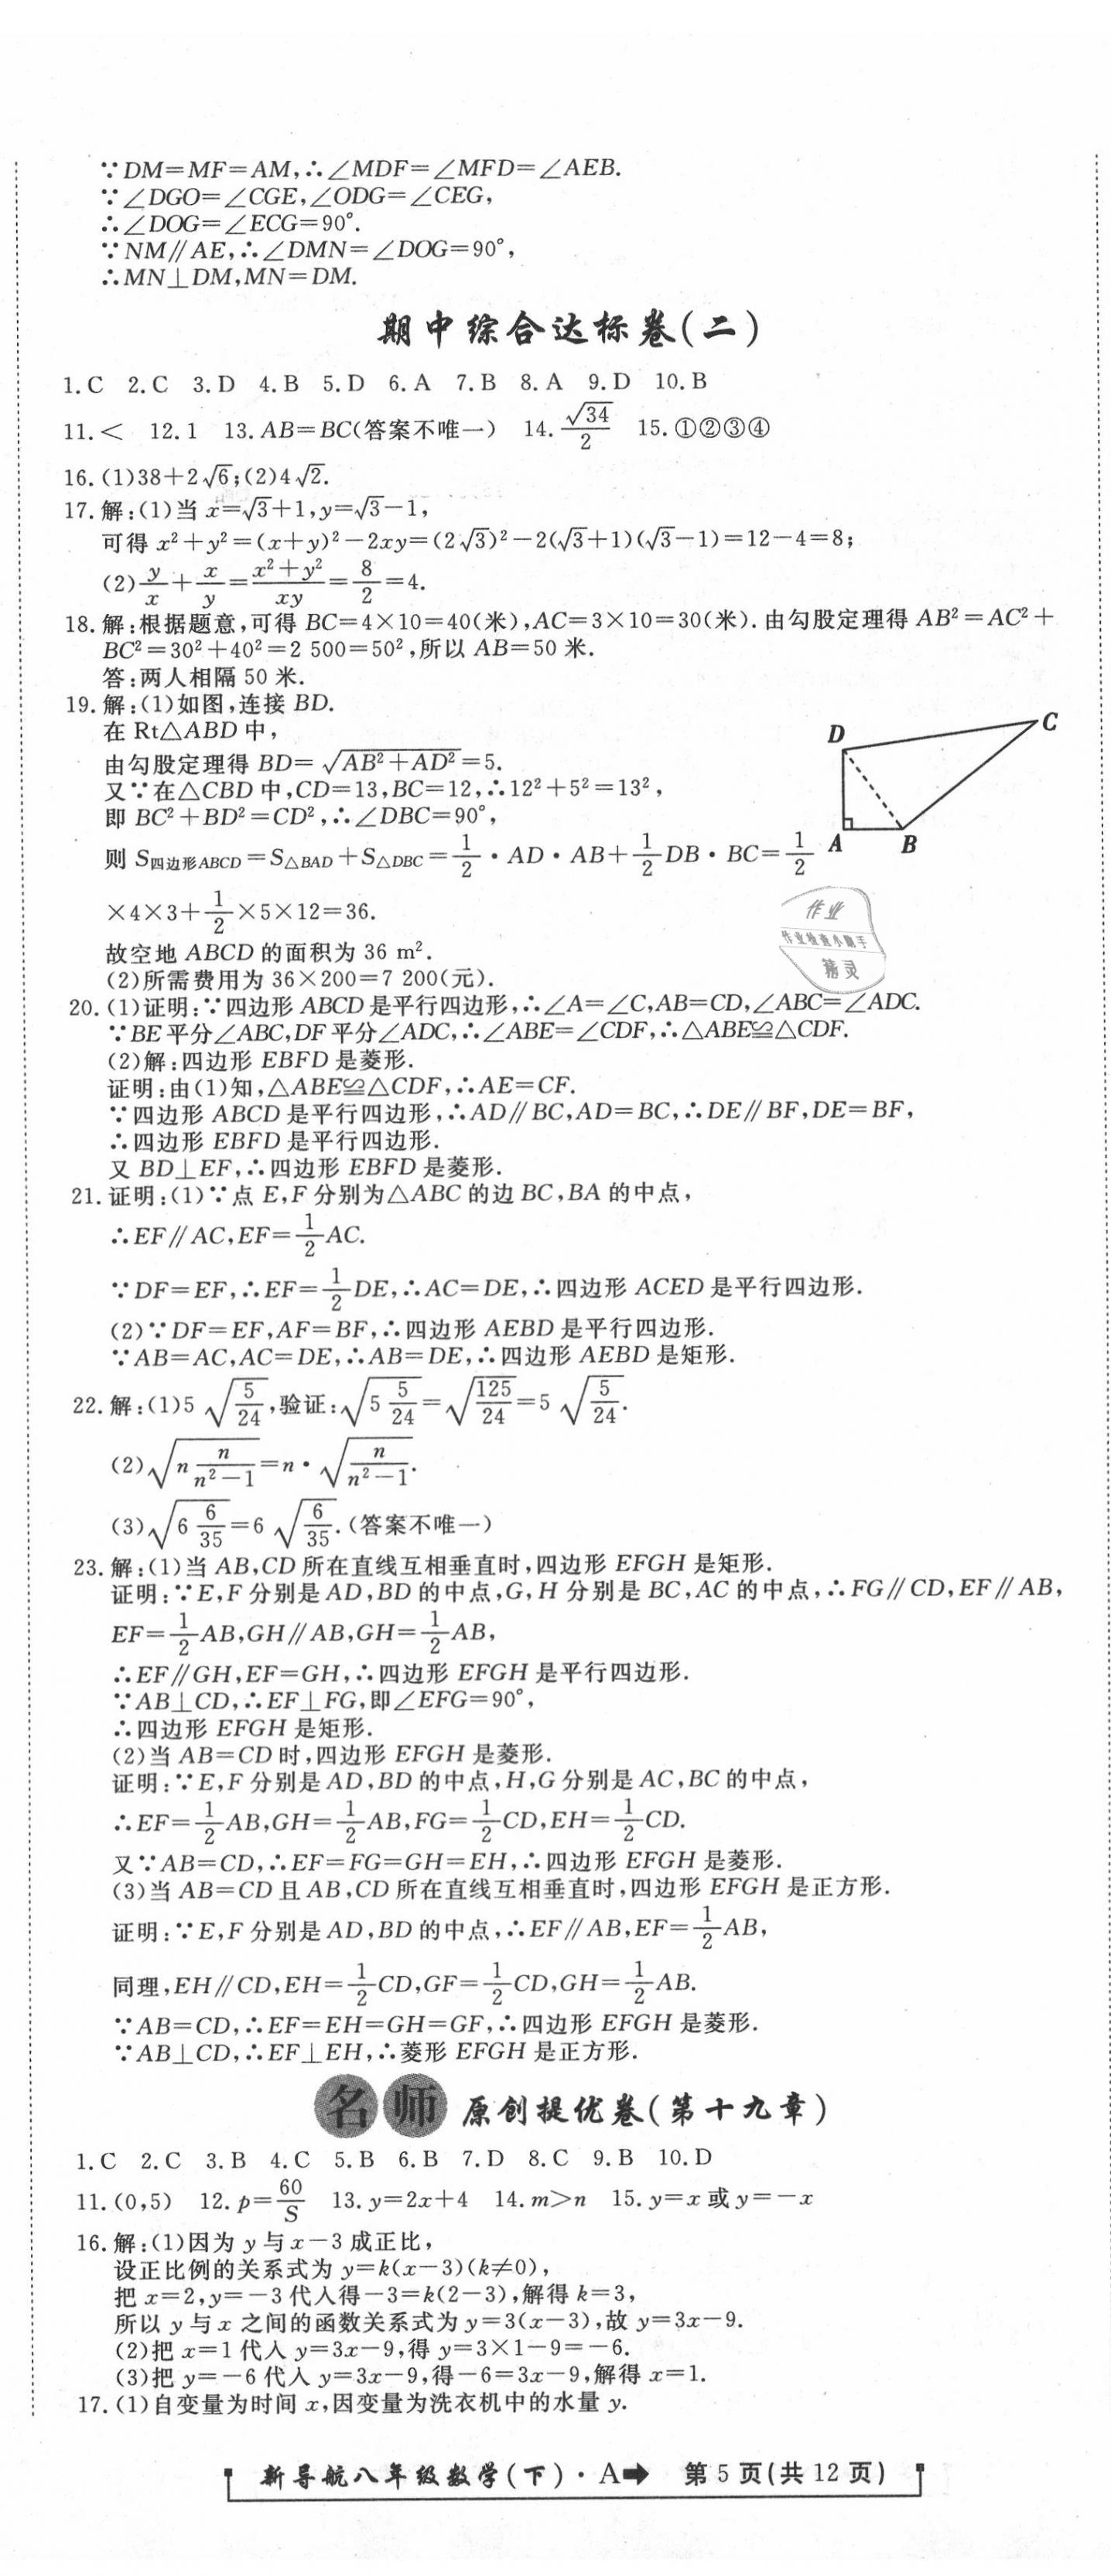 ∵DM=MF=AM,∴∠MDF=∠MFD=∠AEB.
∵∠DGO=∠CGE,∠ODG=∠CEG,
∴∠DOG=∠ECG=90°.
∵NM∥AE,∴∠DMN=∠DOG=90°,
∴MN⊥DM,MN=DM.
期中综合达标卷(二)
1.C 2.C 3.D 4.B 5.D 6.A 7.B 8.A 9.D 10.B
11.< 12.1 13.AB=BC(答案不唯一) 14.√34/2 15.①②③④
16.(1)38+2√6;(2)4√2.
17.解:(1)当 x=√3+1,y=√3-1,
可得 x²+y²=(x+y)²-2xy=(2√3)²-2(√3+1)(√3-1)=12-4=8;
(2)y/x+x/y=(x²+y²)/xy=8/2=4.
18.解:根据题意,可得 BC=4×10=40(米),AC=3×10=30(米).由勾股定理得 AB²=AC²+
BC²=30²+40²=2 500=50²,所以 AB=50 米.
答:两人相隔 50 米.
19.解:(1)如图,连接 BD.
在 Rt△ABD 中,
由勾股定理得 BD=√(AB²+AD²)=5.
又∵在△CBD 中,CD=13,BC=12,∴12²+5²=13²,
即 BC²+BD²=CD²,∴∠DBC=90°,
则 S四边形ABCD=S△BAD+S△DBC=1/2·AD·AB+1/2DB·BC=1/2
×4×3+1/2×5×12=36.
故空地 ABCD 的面积为 36 m².
(2)所需费用为 36×200=7 200(元).
D
C
A
B
作业
作业检查小助手
精灵
20.(1)证明:∵四边形 ABCD 是平行四边形,∴∠A=∠C,AB=CD,∠ABC=∠ADC.
∵BE 平分∠ABC,DF 平分∠ADC,∴∠ABE=∠CDF,∴△ABE≌△CDF.
(2)解:四边形 EBFD 是菱形.
证明:由(1)知,△ABE≌△CDF,∴AE=CF.
∵四边形 ABCD 是平行四边形,∴AD∥BC,AD=BC,∴DE∥BF,DE=BF,
∴四边形 EBFD 是平行四边形.
又 BD⊥EF,∴四边形 EBFD 是菱形.
21.证明:(1)∵点 E,F 分别为△ABC 的边 BC,BA 的中点,
∴EF∥AC,EF=1/2AC.
∵DF=EF,∴EF=1/2DE,∴AC=DE,∴四边形 ACED 是平行四边形.
(2)∵DF=EF,AF=BF,∴四边形 AEBD 是平行四边形.
∵AB=AC,AC=DE,∴AB=DE,∴四边形 AEBD 是矩形.
22.解:(1)5√(5/24),验证:√(5 5/24)=√(125/24)=5√(5/24).
(2)√(n n/(n²-1))=n·√(n/(n²-1)).
(3)√(6 6/35)=6√(6/35).(答案不唯一)
23.解:(1)当 AB,CD 所在直线互相垂直时,四边形 EFGH 是矩形.
证明:∵E,F 分别是 AD,BD 的中点,G,H 分别是 BC,AC 的中点,∴FG∥CD,EF∥AB,
EF=1/2AB,GH∥AB,GH=1/2AB,
∴EF∥GH,EF=GH,∴四边形 EFGH 是平行四边形.
∵AB⊥CD,∴EF⊥FG,即∠EFG=90°,
∴四边形 EFGH 是矩形.
(2)当 AB=CD 时,四边形 EFGH 是菱形.
证明:∵E,F 分别是 AD,BD 的中点,H,G 分别是 AC,BC 的中点,
∴EF=1/2AB,GH=1/2AB,FG=1/2CD,EH=1/2CD.
又∵AB=CD,∴EF=FG=GH=EH,∴四边形 EFGH 是菱形.
(3)当 AB=CD 且 AB,CD 所在直线互相垂直时,四边形 EFGH 是正方形.
证明:∵E,F 分别是 AD,BD 的中点,∴EF∥AB,EF=1/2AB,
同理,EH∥CD,EH=1/2CD,GF=1/2CD,GH=1/2AB.
∵AB=CD,∴EF=EH=GH=GF,∴四边形 EFGH 是菱形.
∵AB⊥CD,∴EF⊥EH,∴菱形 EFGH 是正方形.
名师 原创提优卷(第十九章)
1.C 2.C 3.B 4.C 5.B 6.B 7.D 8.C 9.B 10.D
11.(0,5) 12.p=60/S 13.y=2x+4 14.m>n 15.y=x 或 y=-x
16.解:(1)因为 y 与 x-3 成正比,
设正比例的关系式为 y=k(x-3)(k≠0),
把 x=2,y=-3 代入得-3=k(2-3),解得 k=3,
所以 y 与 x 之间的函数关系式为 y=3(x-3),故 y=3x-9.
(2)把 x=1 代入 y=3x-9,得 y=3×1-9=-6.
(3)把 y=-6 代入 y=3x-9,得-6=3x-9,解得 x=1.
17.(1)自变量为时间 x,因变量为洗衣机中的水量 y.
新导航八年级数学(下)·A➡ 第 5 页(共 12 页)